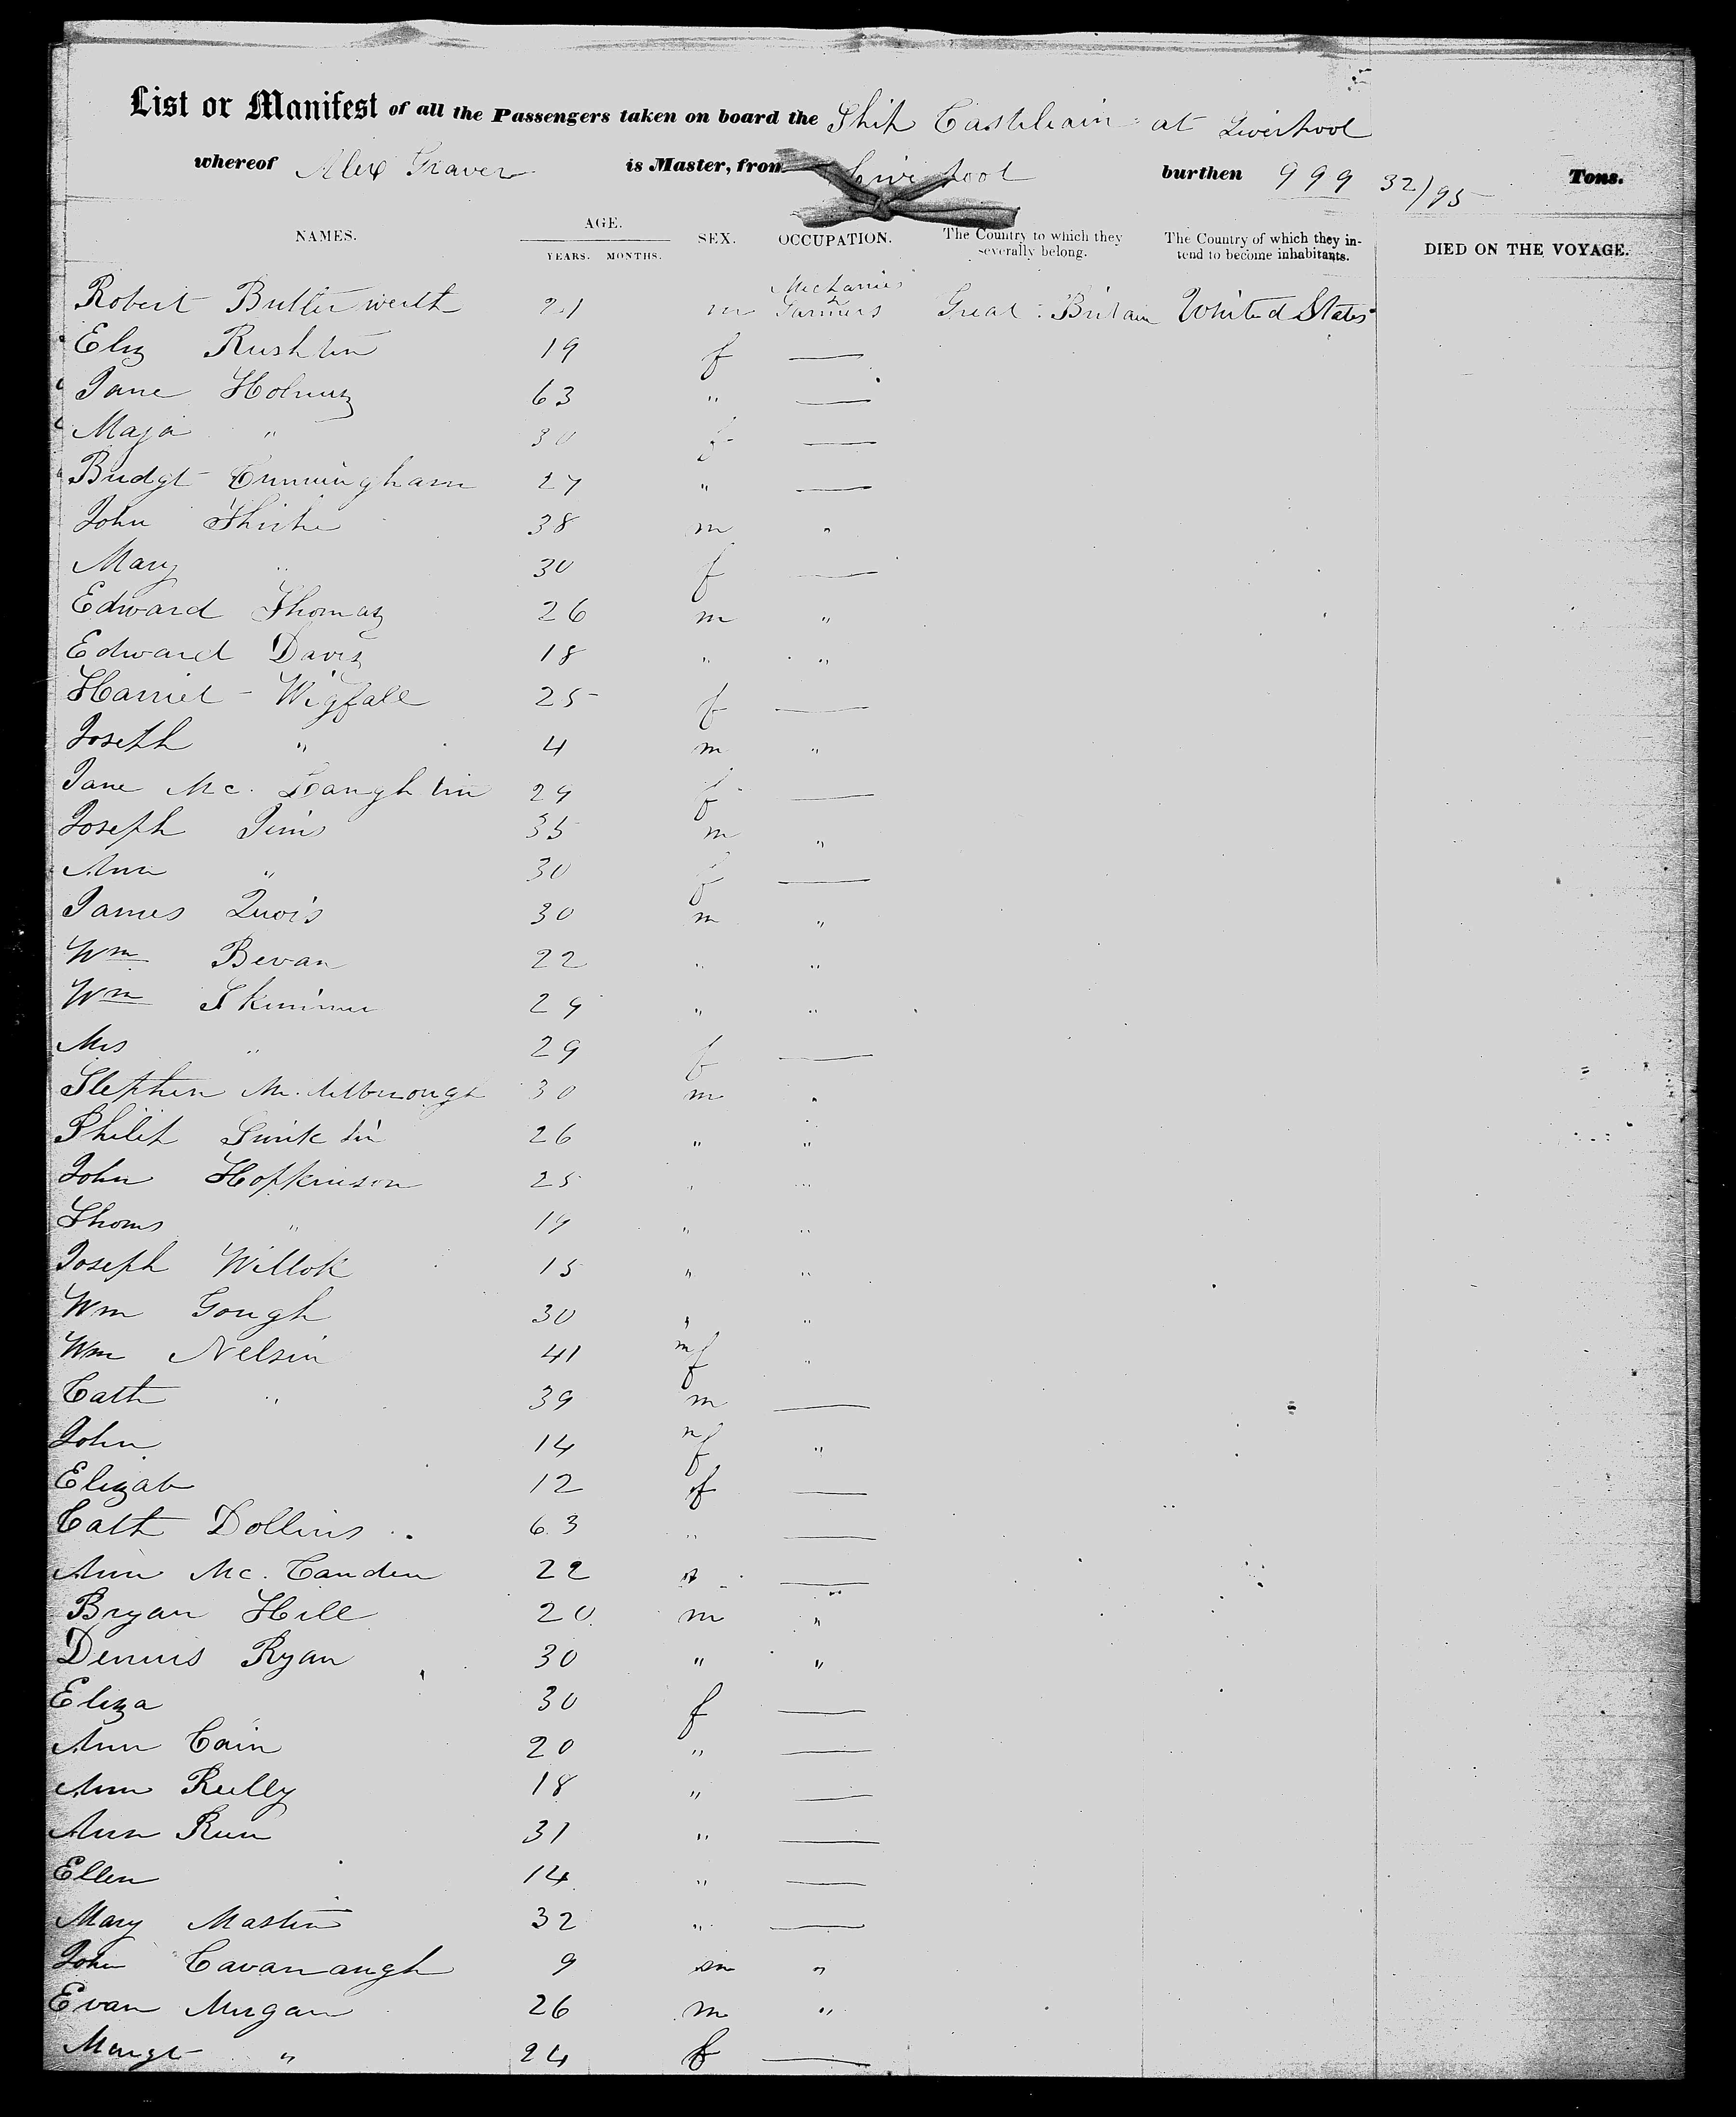 List or Manifest of all the Passengers taken on board the Ship Castleain at Liverpool
whereof Alex Graver is Master, from Liverpool burthen 999 32/95 Tons.
NAMES. AGE. YEARS. MONTHS. SEX. OCCUPATION. The Country to which they severally belong. The Country of which they intend to become inhabitants. DIED ON THE VOYAGE.
Robert Butterworth 21 m Mechanics & Farmers Great Britain United States
Eliz Rushton 19 f —
Jane Holmes 63 " —
Maja " 30 f —
Bridgt Cunningham 27 " —
John 38 m "
Mary " 30 f —
Edward Thomas 26 m "
Edward Davis 18 " "
Harriet Wigfall 25 f —
Joseph " 4 m "
Jane Mc. Laughlin 29 f —
Joseph 35 m "
Ann " 30 f —
James 30 m "
Wm Bevan 22 " "
Wm Skinner 29 " "
Mrs " 29 f —
Stephen 30 m "
Philip 26 " "
John Hopkinson 25 " "
Thoms " 19 " "
Joseph Willok 15 " "
Wm Gough 30 " "
Wm Nelson 41 m f "
Cath " 39 m —
John 14 m f "
Elizab 12 f —
Cath Dollins 63 " —
Ann Mc. Canden 22 " —
Bryan Hill 20 m "
Dennis Ryan 30 " "
Eliza 30 f —
Ann Cain 20 " —
Ann Reilly 18 " —
Ann 31 " —
Ellen 14 " —
Mary Mastin 32 " —
John Cavanaugh 9 m "
Evan Morgan 26 m "
Margt " 24 f —